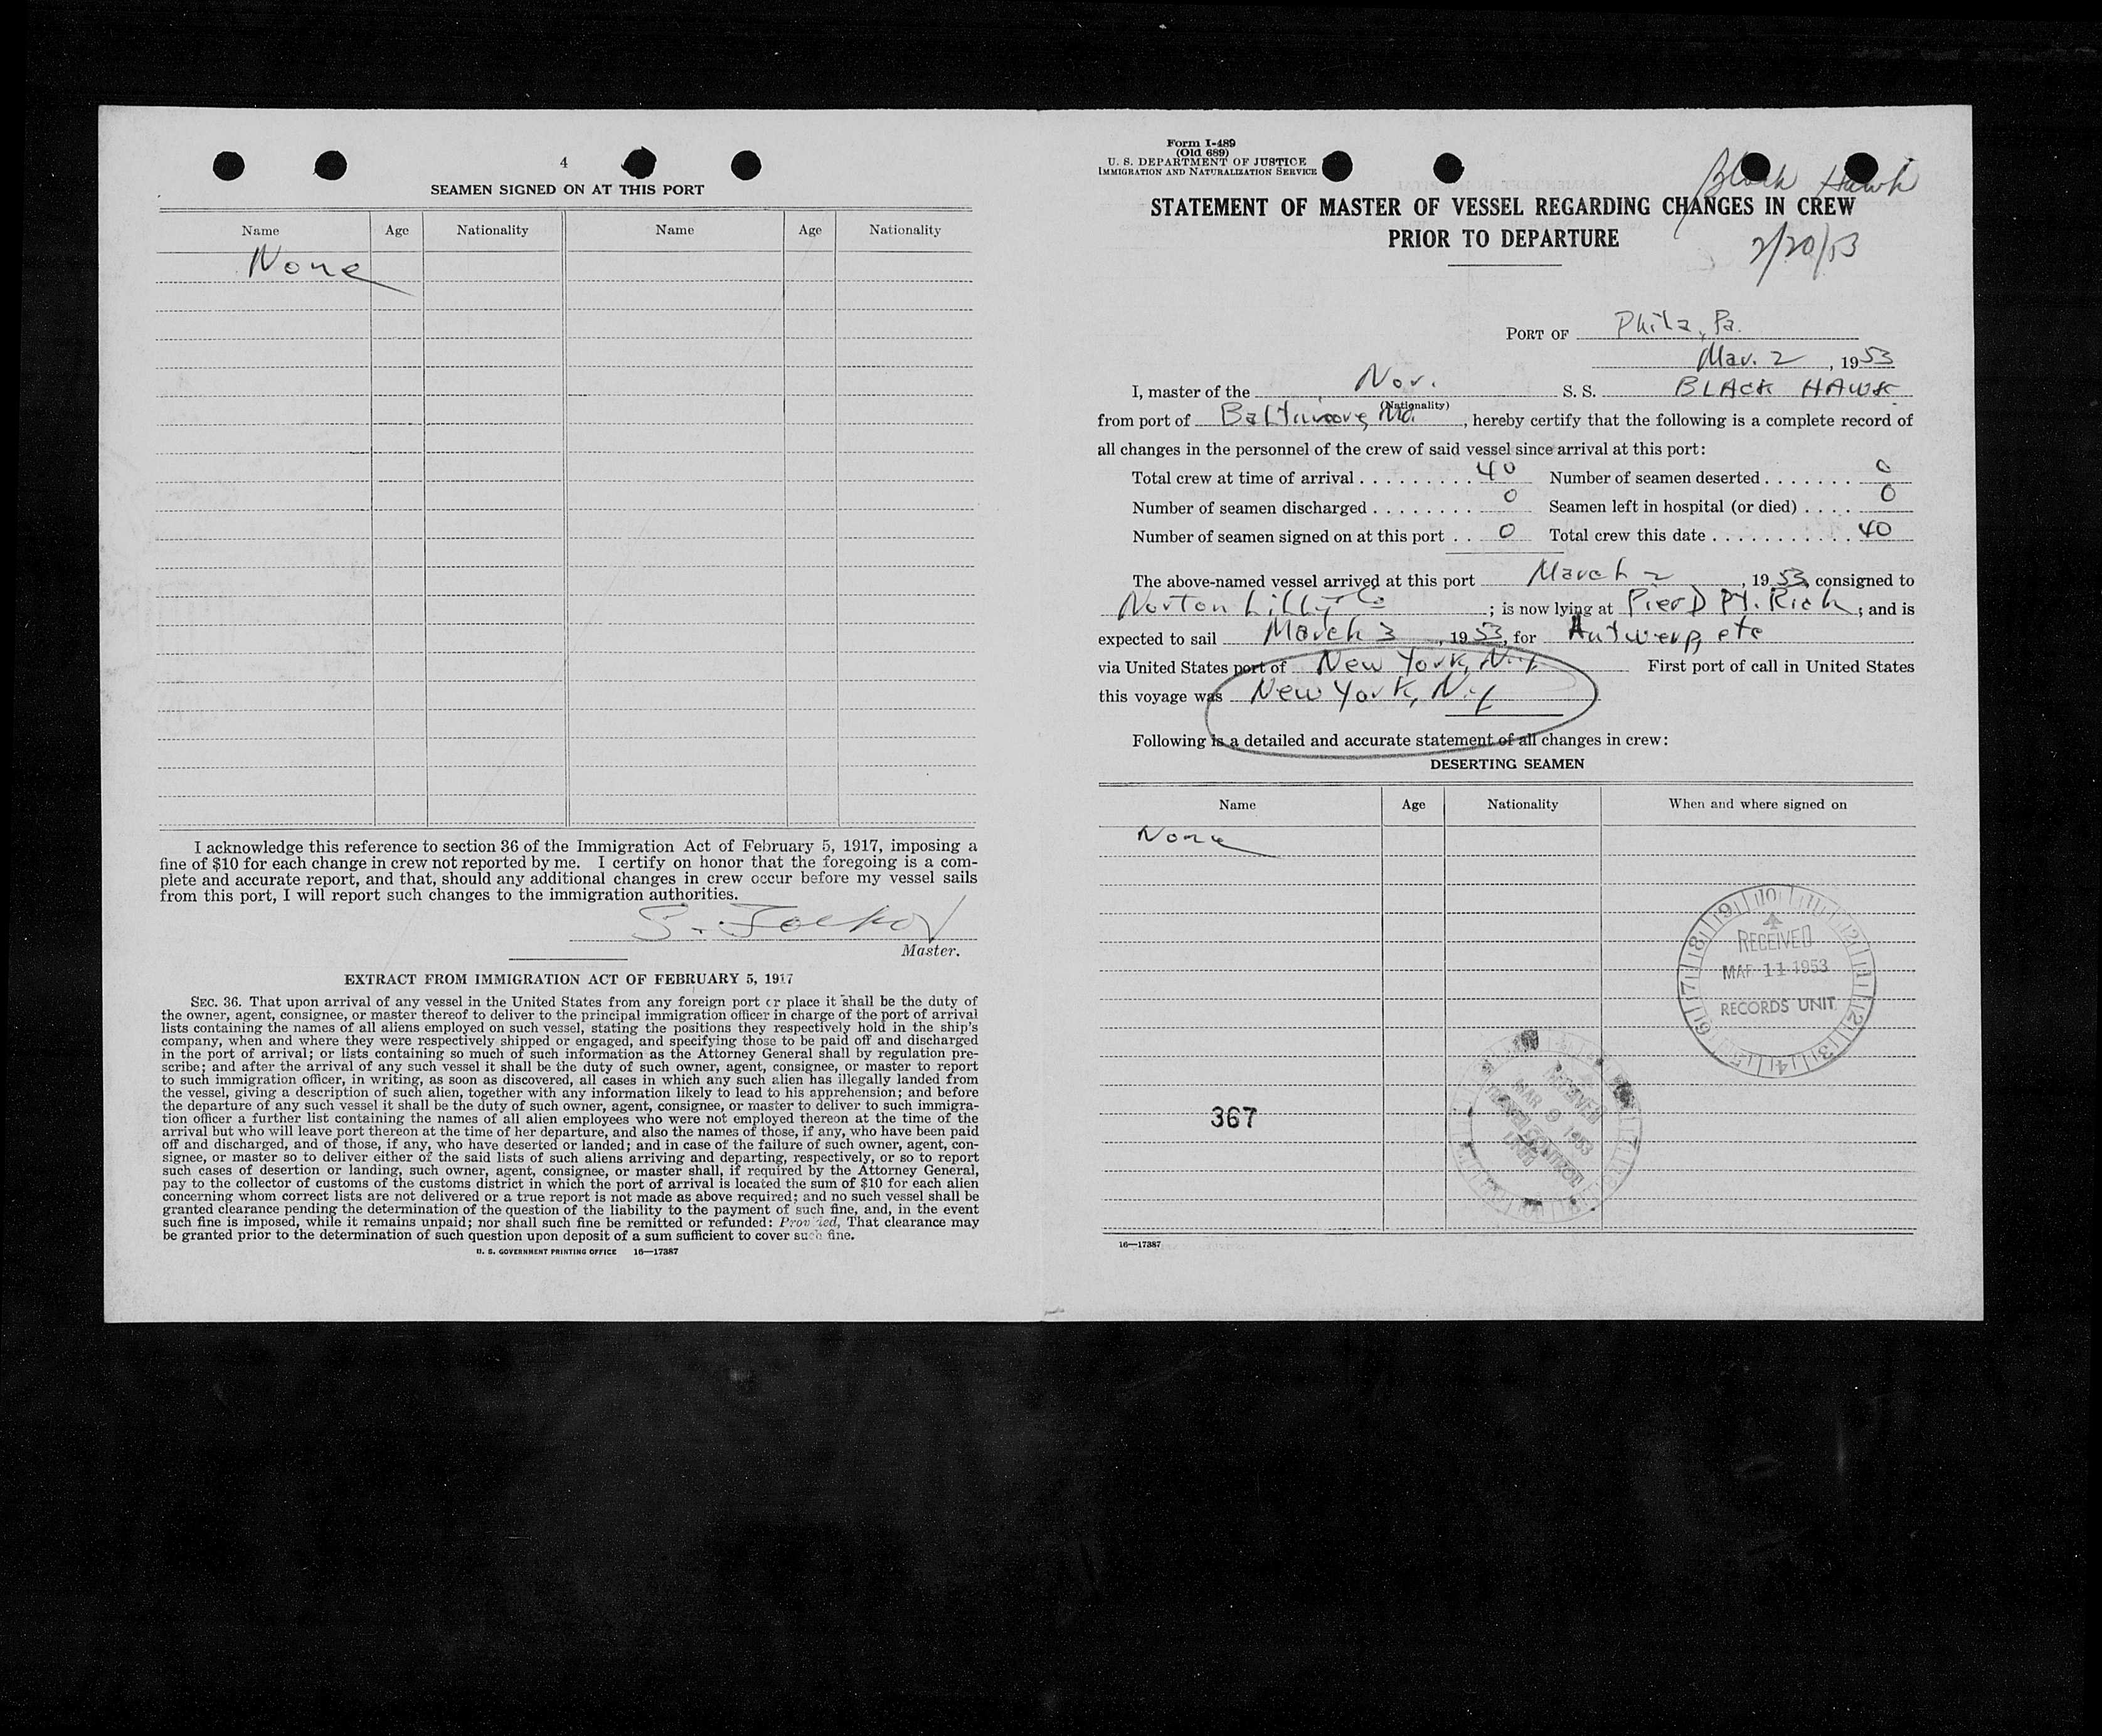 4
SEAMEN SIGNED ON AT THIS PORT
Name Age Nationality Name Age Nationality
None
I acknowledge this reference to section 36 of the Immigration Act of February 5, 1917, imposing a
fine of $10 for each change in crew not reported by me. I certify on honor that the foregoing is a com-
plete and accurate report, and that, should any additional changes in crew occur before my vessel sails
from this port, I will report such changes to the immigration authorities.
Master.
EXTRACT FROM IMMIGRATION ACT OF FEBRUARY 5, 1917
SEC. 36. That upon arrival of any vessel in the United States from any foreign port or place it shall be the duty of
the owner, agent, consignee, or master thereof to deliver to the principal immigration officer in charge of the port of arrival
lists containing the names of all aliens employed on such vessel, stating the positions they respectively hold in the ship's
company, when and where they were respectively shipped or engaged, and specifying those to be paid off and discharged
in the port of arrival; or lists containing so much of such information as the Attorney General shall by regulation pre-
scribe; and after the arrival of any such vessel it shall be the duty of such owner, agent, consignee, or master to report
to such immigration officer, in writing, as soon as discovered, all cases in which any such alien has illegally landed from
the vessel, giving a description of such alien, together with any information likely to lead to his apprehension; and before
the departure of any such vessel it shall be the duty of such owner, agent, consignee, or master to deliver to such immigra-
tion officer a further list containing the names of all alien employees who were not employed thereon at the time of the
arrival but who will leave port thereon at the time of her departure, and also the names of those, if any, who have been paid
off and discharged, and of those, if any, who have deserted or landed; and in case of the failure of such owner, agent, con-
signee, or master so to deliver either of the said lists of such aliens arriving and departing, respectively, or so to report
such cases of desertion or landing, such owner, agent, consignee, or master shall, if required by the Attorney General,
pay to the collector of customs of the customs district in which the port of arrival is located the sum of $10 for each alien
concerning whom correct lists are not delivered or a true report is not made as above required; and no such vessel shall be
granted clearance pending the determination of the question of the liability to the payment of such fine, and, in the event
such fine is imposed, while it remains unpaid; nor shall such fine be remitted or refunded: Provided, That clearance may
be granted prior to the determination of such question upon deposit of a sum sufficient to cover such fine.
U. S. GOVERNMENT PRINTING OFFICE 16—17387
Form I-489
(Old 689)
U. S. DEPARTMENT OF JUSTICE
IMMIGRATION AND NATURALIZATION SERVICE
Black Hawk
STATEMENT OF MASTER OF VESSEL REGARDING CHANGES IN CREW
PRIOR TO DEPARTURE
2/20/53
PORT OF Phila, Pa.
Mar. 2, 1953
I, master of the Nor. S. S. BLACK HAWK
(Nationality)
from port of Baltimore, Md., hereby certify that the following is a complete record of
all changes in the personnel of the crew of said vessel since arrival at this port:
Total crew at time of arrival . . . . . . . . . 40 Number of seamen deserted . . . . . . . 0
Number of seamen discharged . . . . . . . . 0 Seamen left in hospital (or died) . . . . 0
Number of seamen signed on at this port . . 0 Total crew this date . . . . . . . . . . . 40
The above-named vessel arrived at this port March 2, 1953, consigned to
Norton Lilly + Co; is now lying at Pier D Pt. Rich; and is
expected to sail March 3, 1953, for Antwerp, etc
via United States port of New York, N.Y. First port of call in United States
this voyage was New York, N.Y
Following is a detailed and accurate statement of all changes in crew:
DESERTING SEAMEN
Name Age Nationality When and where signed on
None
RECEIVED
MAR 11 1953
RECORDS UNIT
RECEIVED
MAR 9 1953
TRAVEL CONTROL
UNIT
367
16—17387